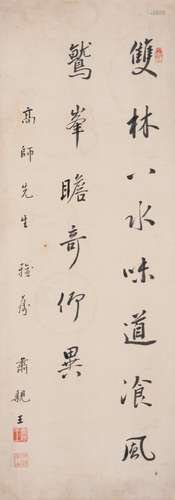 雙林八水味道飡風
鷲峯瞻奇仰異
高師先生雅屬
肅親王